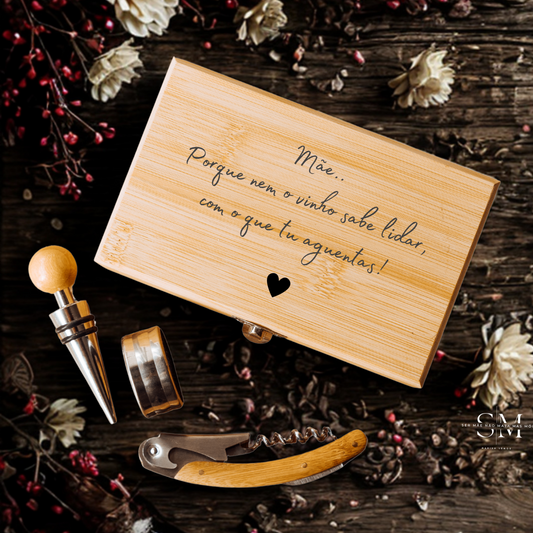 Mãe..
Porque nem o vinho sabe lidar,
com o que tu aguentas!
SM